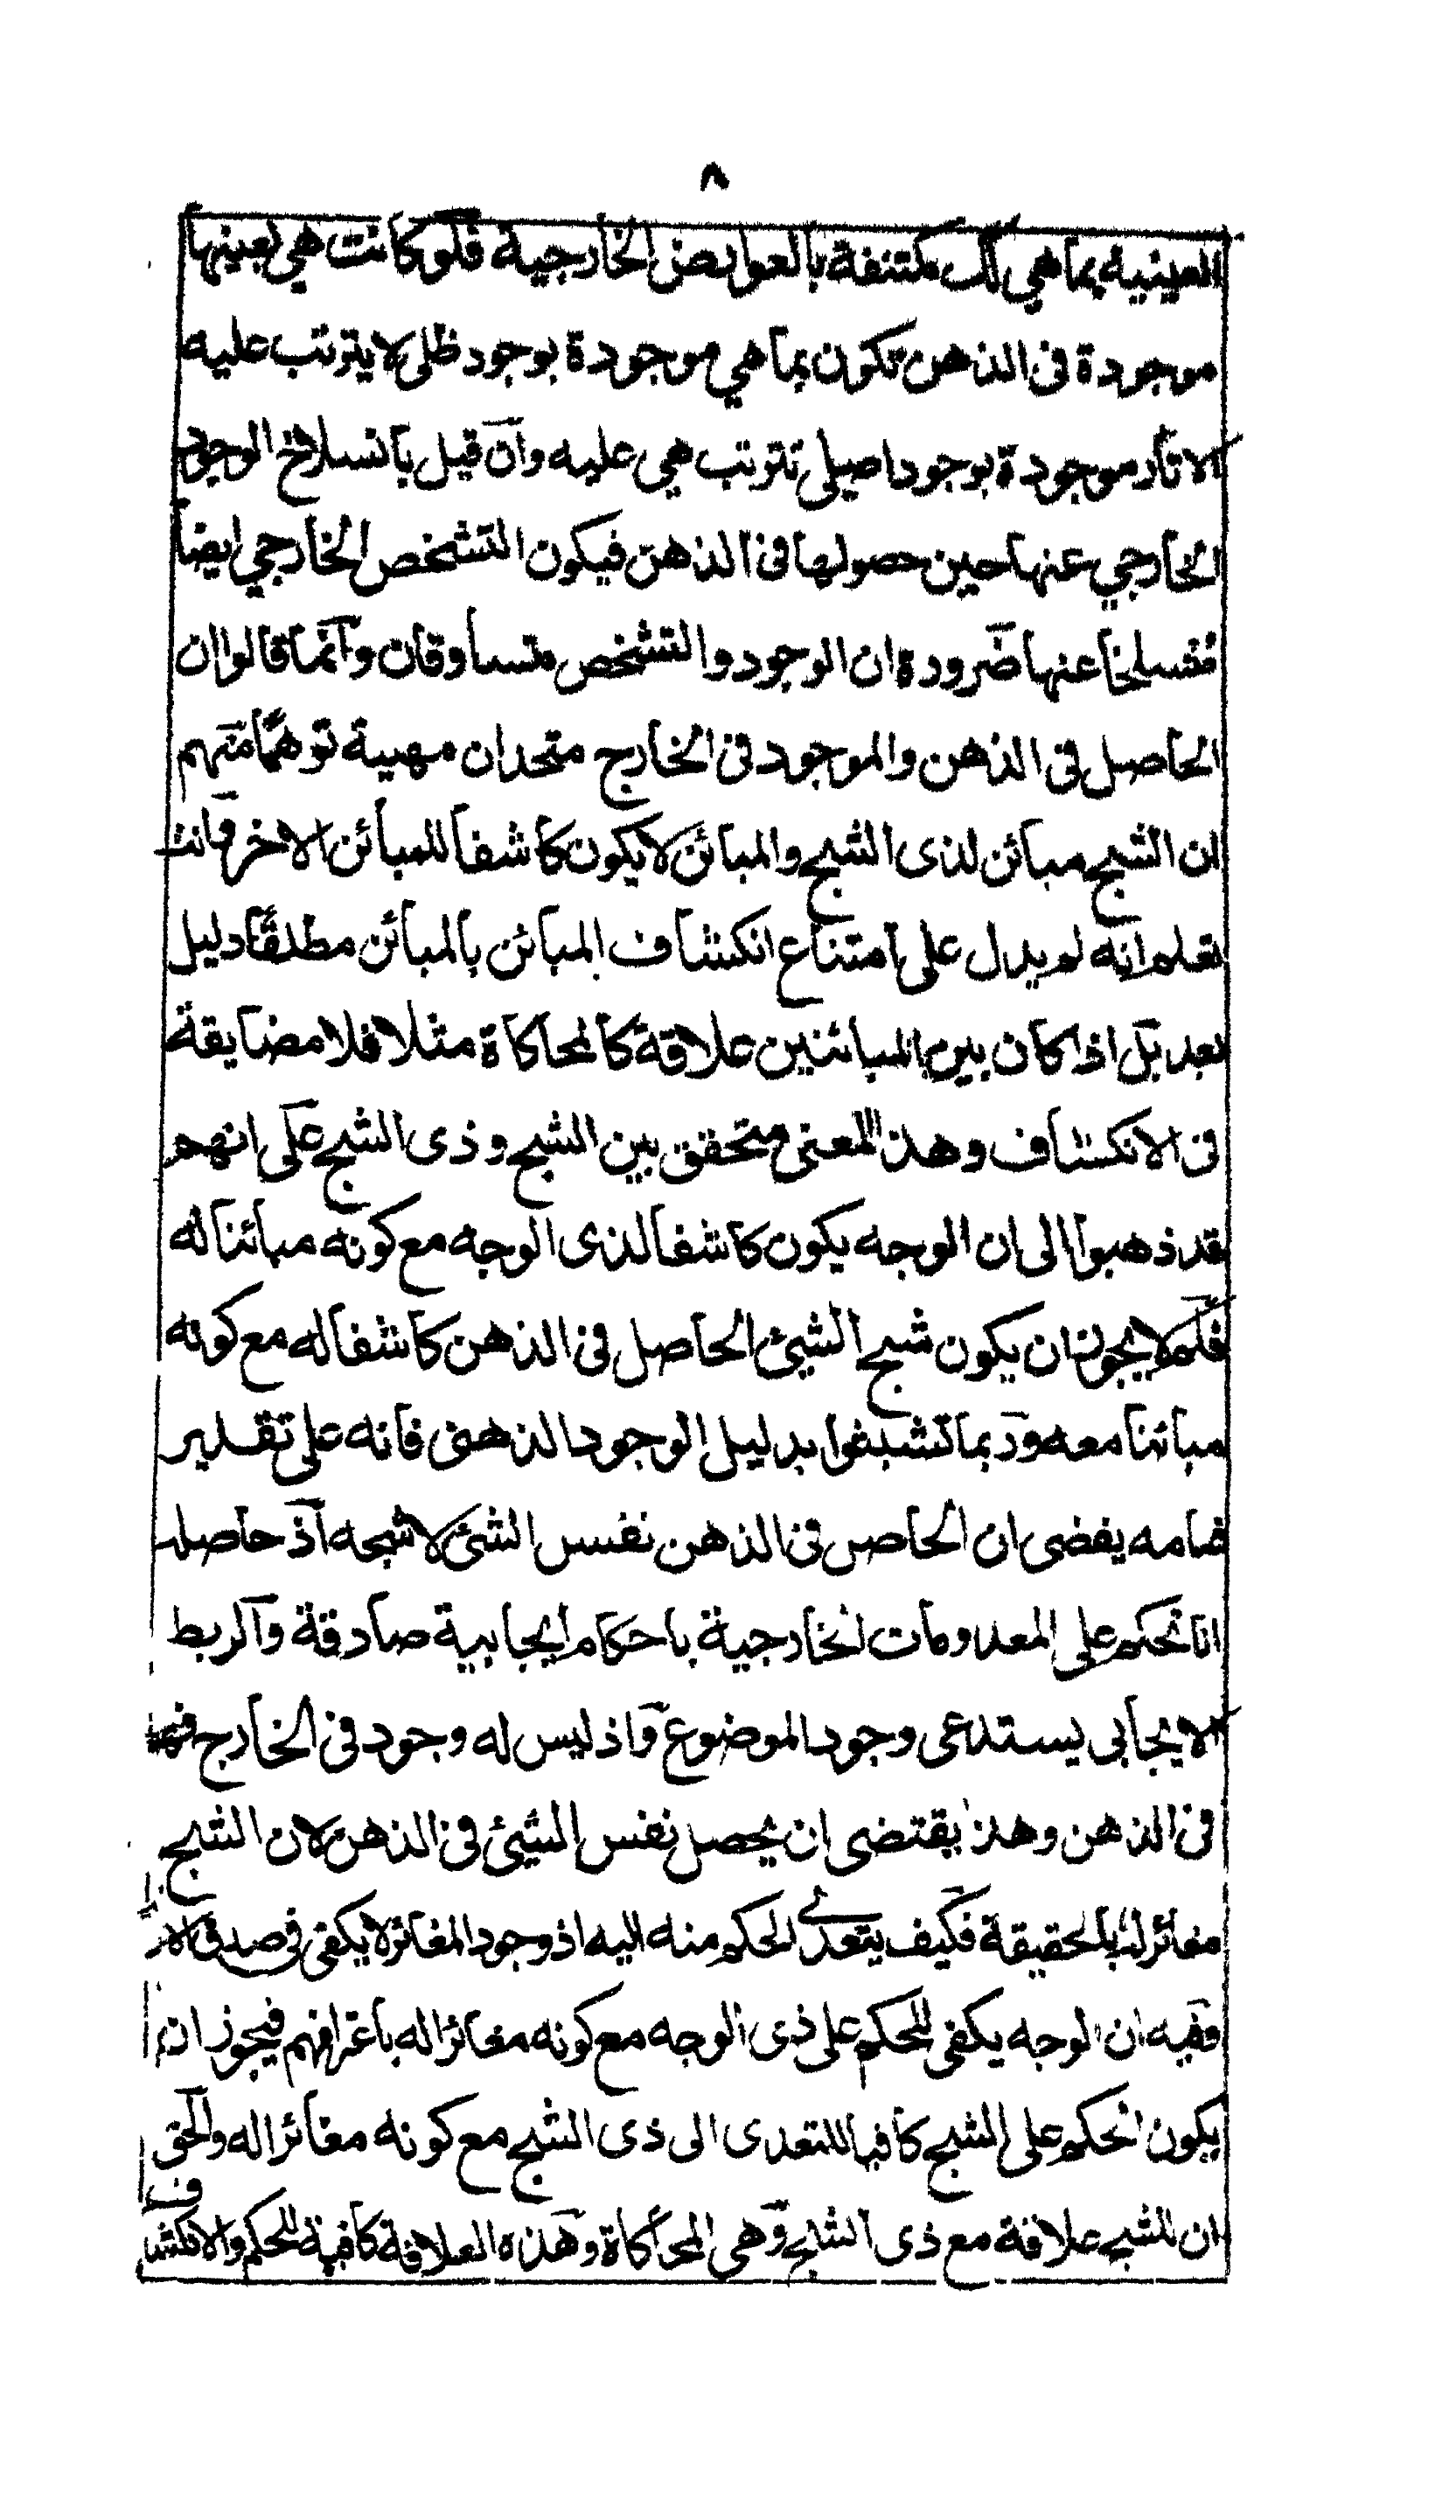 ٨
العينية بما هي كك مكتنفة بالعوارض الخارجية فلو كانت هي بعينها
موجودة فى الذهن تكون بما هي موجودة بوجود ظلى لا يترتب عليه
الاثار موجودة بوجود اصيلى تترتب هي عليه وان قيل بانسلاخ الوجود
الخارجي عنها حين حصولها فى الذهن فيكون التشخص الخارجي ايضا
منسلخا عنها ضرورة ان الوجود والتشخص متساوقان وانما قالوا ان
الحاصل فى الذهن والموجود فى الخارج متحدان مهية توهما منهم
ان الشبح مبائن لذى الشبح والمبائن لا يكون كاشفا للمبائن الاخر وانت
تعلم انه لم يدل على امتناع انكشاف المبائن بالمبائن مطلقا دليل
بعد بل اذا كان بين المبائنين علاقة كالمحاكاة مثلا فلا مضايقة
فى الانكشاف وهذا المعنى متحقق بين الشبح وذى الشبح على انهم
قد ذهبوا الى ان الوجه يكون كاشفا لذى الوجه مع كونه مبائنا له
فلم لا يجوز ان يكون شبح الشيئ الحاصل فى الذهن كاشفا له مع كونه
مبائنا معه وربما تشبثوا بدليل الوجود الذهنى فانه على تقدير
تمامه يفضى ان الحاصل فى الذهن نفس الشئ لا شبحه اذ حاصله
انا نحكم على المعدومات الخارجية باحكام ايجابية صادقة والربط
الايجابى يستدعى وجود الموضوع واذ ليس له وجود فى الخارج فهو
فى الذهن وهذا يقتضى ان يحصل نفس الشيئ فى الذهن لان الشبح
مغائر له بالحقيقة فكيف يتعدى الحكم منه اليه اذ وجود المغائر لا يكفى فى صدق
وفيه ان الوجه يكفى للحكم على ذى الوجه مع كونه مغائرا له باعترافهم فيجوز ان
يكون الحكم على الشبح كافيا للتعدى الى ذى الشبح مع كونه مغائرا له والحق
ان للشبح علاقة مع ذى الشبح وهى المحاكاة وهذه العلاقة كافية للحكم والانكشاف